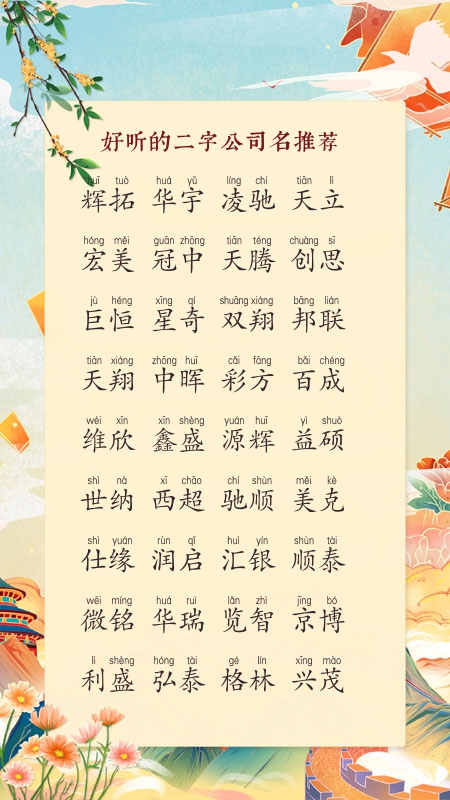 好听的二字公司名推荐
huī tuò huá yǔ líng chí tiān lì
辉拓 华宇 凌驰 天立
hóng měi guān zhōng tiān téng chuàng sī
宏美 冠中 天腾 创思
jù héng xīng qí shuāng xiáng bāng lián
巨恒 星奇 双翔 邦联
tiān xiáng zhōng huī cǎi fāng bǎi chéng
天翔 中晖 彩方 百成
wéi xīn xīn shèng yuán huī yì shuò
维欣 鑫盛 源辉 益硕
shì nà xī chāo chí shùn měi kè
世纳 西超 驰顺 美克
shì yuán rùn qǐ huì yín shùn tài
仕缘 润启 汇银 顺泰
wēi míng huá ruì lǎn zhì jīng bó
微铭 华瑞 览智 京博
lì shèng hóng tài gé lín xīng mào
利盛 弘泰 格林 兴茂